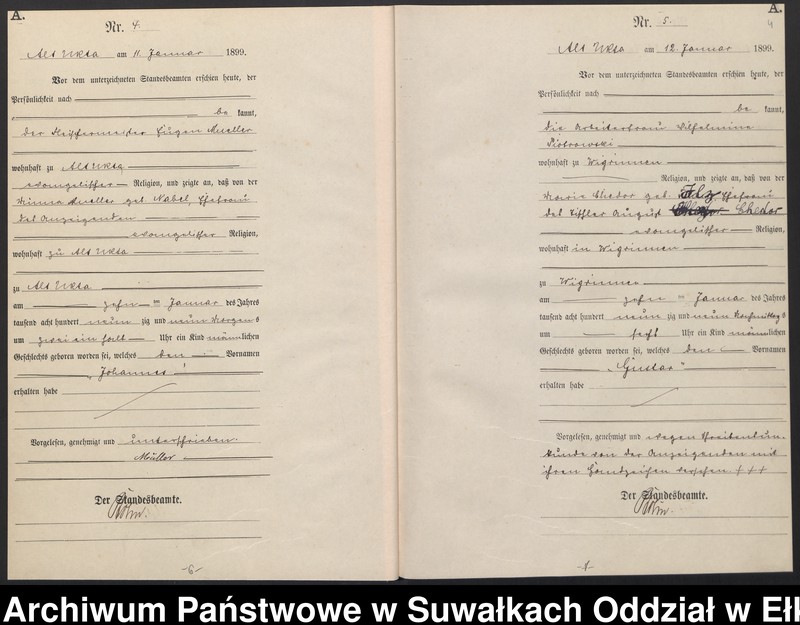 A.
Nr. 4.
Alt Ukta am 11. Januar 1899.
Vor dem unterzeichneten Standesbeamten erschien heute, der
Persönlichkeit nach
be kannt,
der Eugen Mueller
wohnhaft zu Alt Ukta
evangelischer Religion, und zeigte an, daß von der
Minna Mueller geb. Nabel, Ehefrau
des Anzeigenden
evangelischer Religion,
wohnhaft zu Alt Ukta
zu Alt Ukta
am zehn ten Januar des Jahres
tausend acht hundert neun zig und neun Morgens
um zwei ein halb Uhr ein Kind männlichen
Geschlechts geboren worden sei, welches den Vornamen
„Johannes"
erhalten habe
Vorgelesen, genehmigt und unterschrieben.
Müller
Der Standesbeamte.
-6-
A.
4
Nr. 5.
Alt Ukta am 12. Januar 1899.
Vor dem unterzeichneten Standesbeamten erschien heute, der
Persönlichkeit nach
be kannt,
die Arbeiterfrau Wilhelmine
Piotrowski
wohnhaft zu Wigrinnen
Religion, und zeigte an, daß von der
Marie Chedor geb. Ehefrau
des Tischler August Chedor
evangelischer Religion,
wohnhaft in Wigrinnen
zu Wigrinnen
am zehn ten Januar des Jahres
tausend acht hundert neun zig und neun Nachmittags
um sechs Uhr ein Kind männlichen
Geschlechts geboren worden sei, welches den Vornamen
„Gustav"
erhalten habe
Vorgelesen, genehmigt und wegen Schreibensun-
kunde von der Anzeigenden mit
ihren Handzeichen versehen +++
Der Standesbeamte.
Archiwum Państwowe w Suwałkach Oddział w Eł